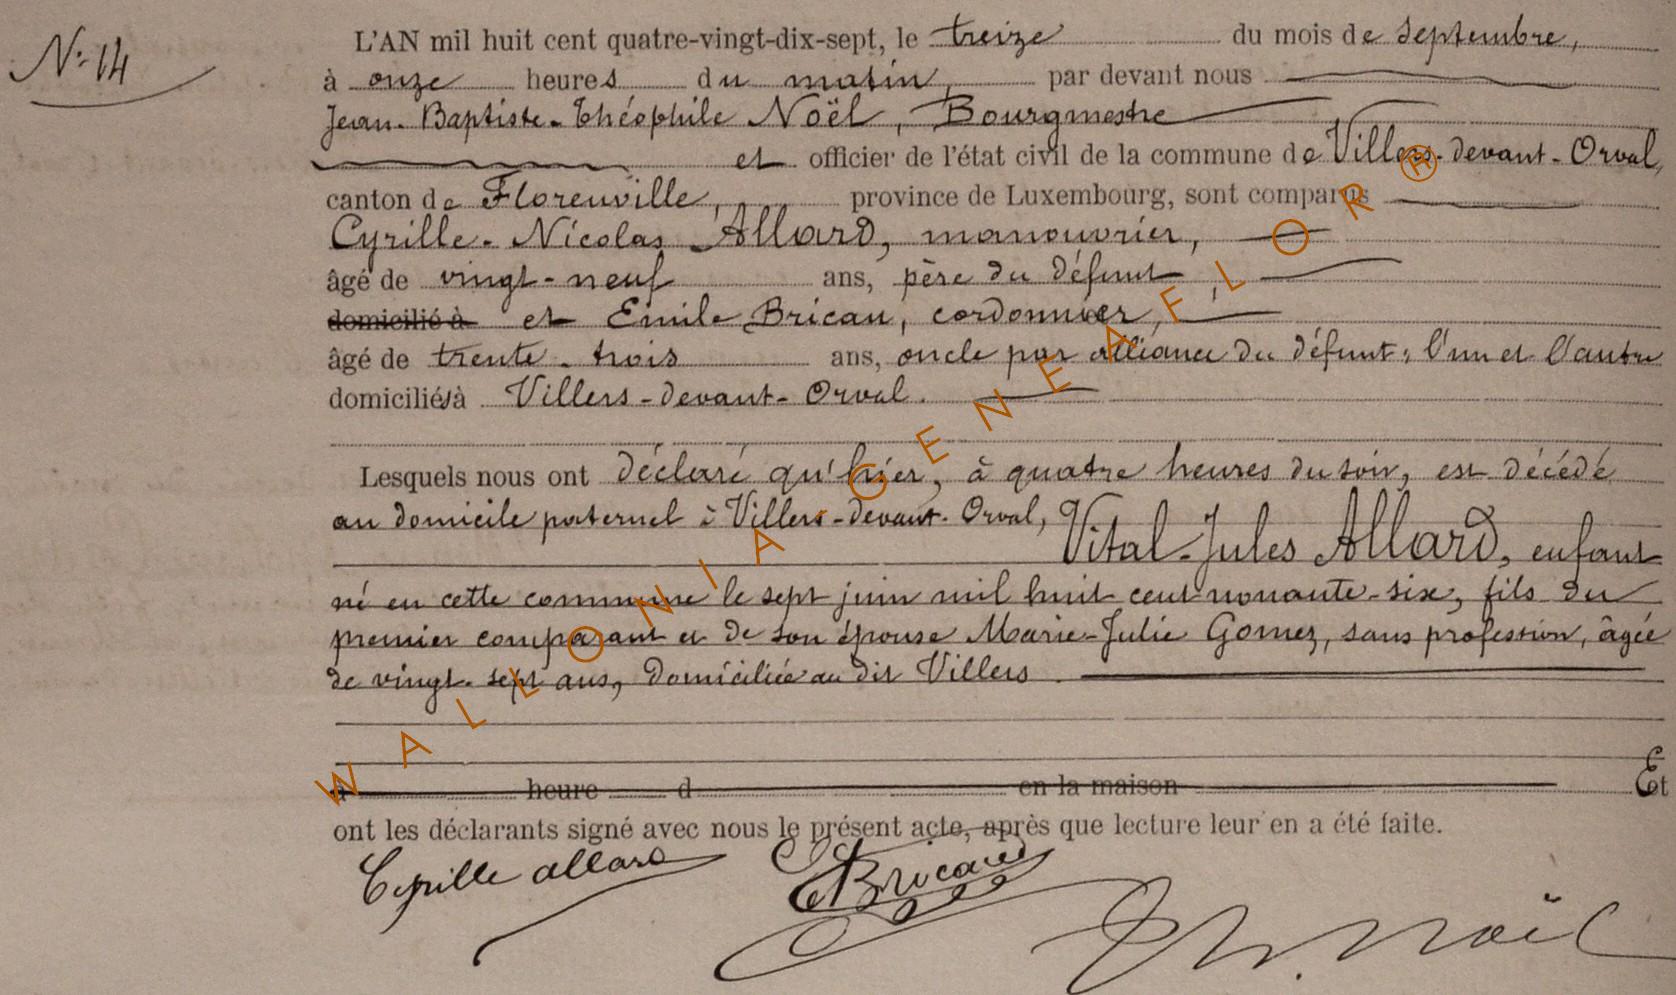 N° 14
L'AN mil huit cent quatre-vingt-dix-sept, le treize du mois de septembre,
à onze heures du matin, par devant nous
Jean-Baptiste-Théophile Noël, Bourgmestre
et officier de l'état civil de la commune de Villers-devant-Orval,
canton de Florenville, province de Luxembourg, sont comparus
Cyrille-Nicolas Allard, manouvrier,
âgé de vingt-neuf ans, père du défunt,
domicilié à et Emile Bricau, cordonnier,
âgé de trente-trois ans, oncle par alliance du défunt, l'un et l'autre
domiciliés à Villers-devant-Orval.
Lesquels nous ont déclaré qu'hier, à quatre heures du soir, est décédé
au domicile paternel à Villers-devant-Orval,
Vital-Jules Allard, enfant
né en cette commune le sept juin mil huit cent nonante-six, fils du
premier comparant et de son épouse Marie-Julie Gomez, sans profession, âgée
de vingt-sept ans, domiciliée au dit Villers.
à heure d en la maison Et
ont les déclarants signé avec nous le présent acte, après que lecture leur en a été faite.
Cyrille allard EBricau Th. Noël
WALLONIA-GENEAFLOR®